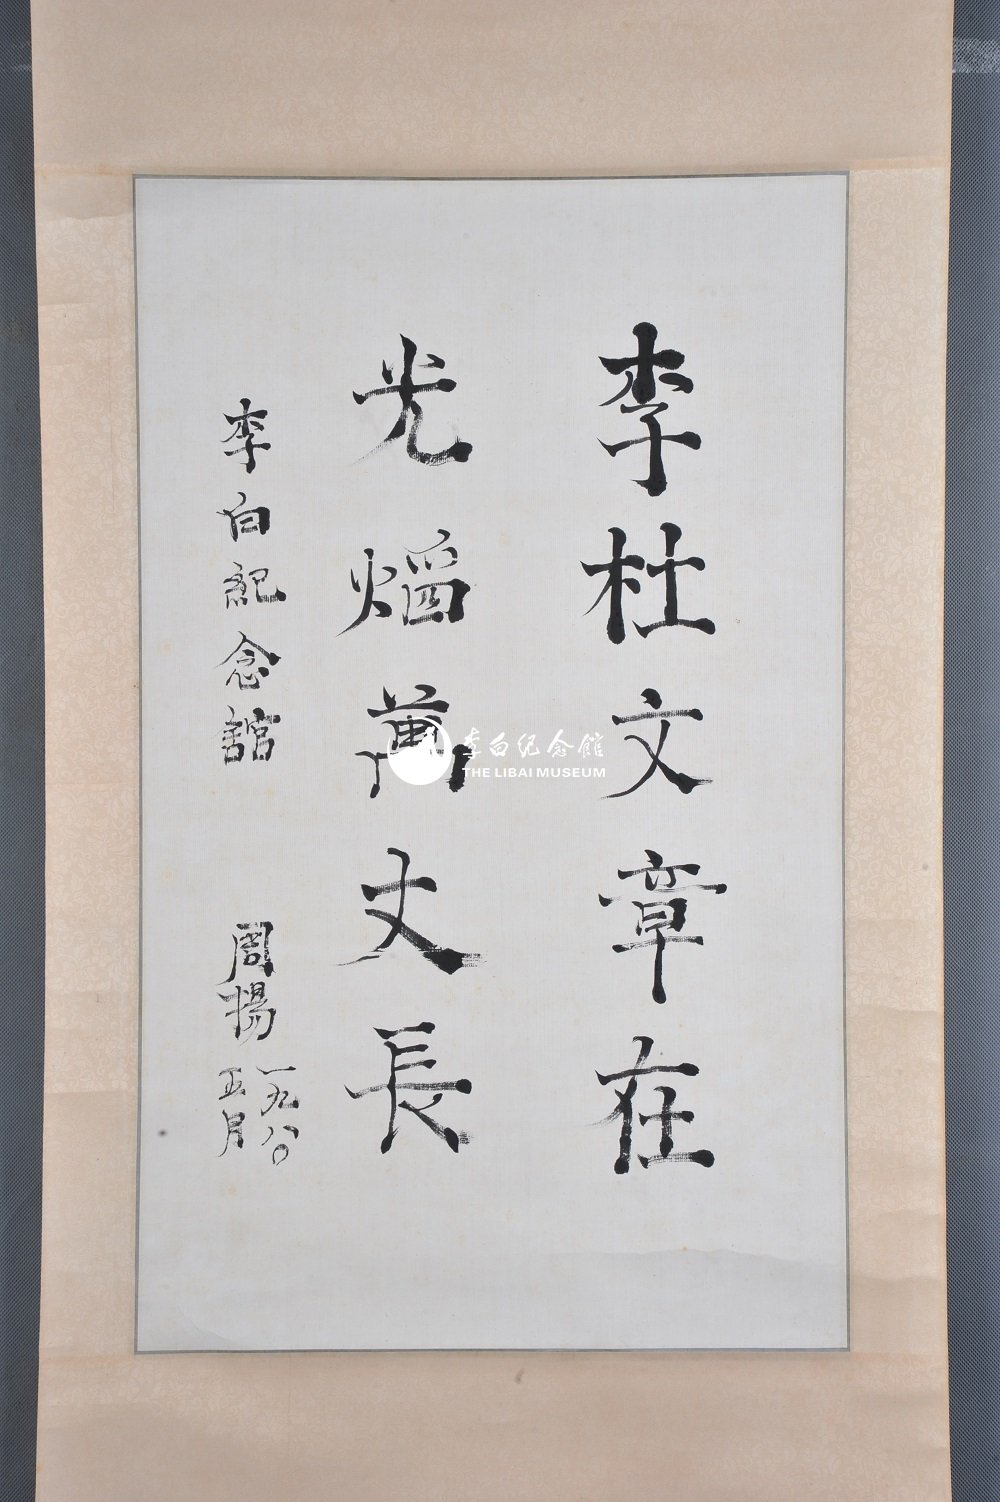 李杜文章在
光熖萬丈長
李白紀念舘
周揚
一九八〇
五月
李白纪念馆
THE LIBAI MUSEUM